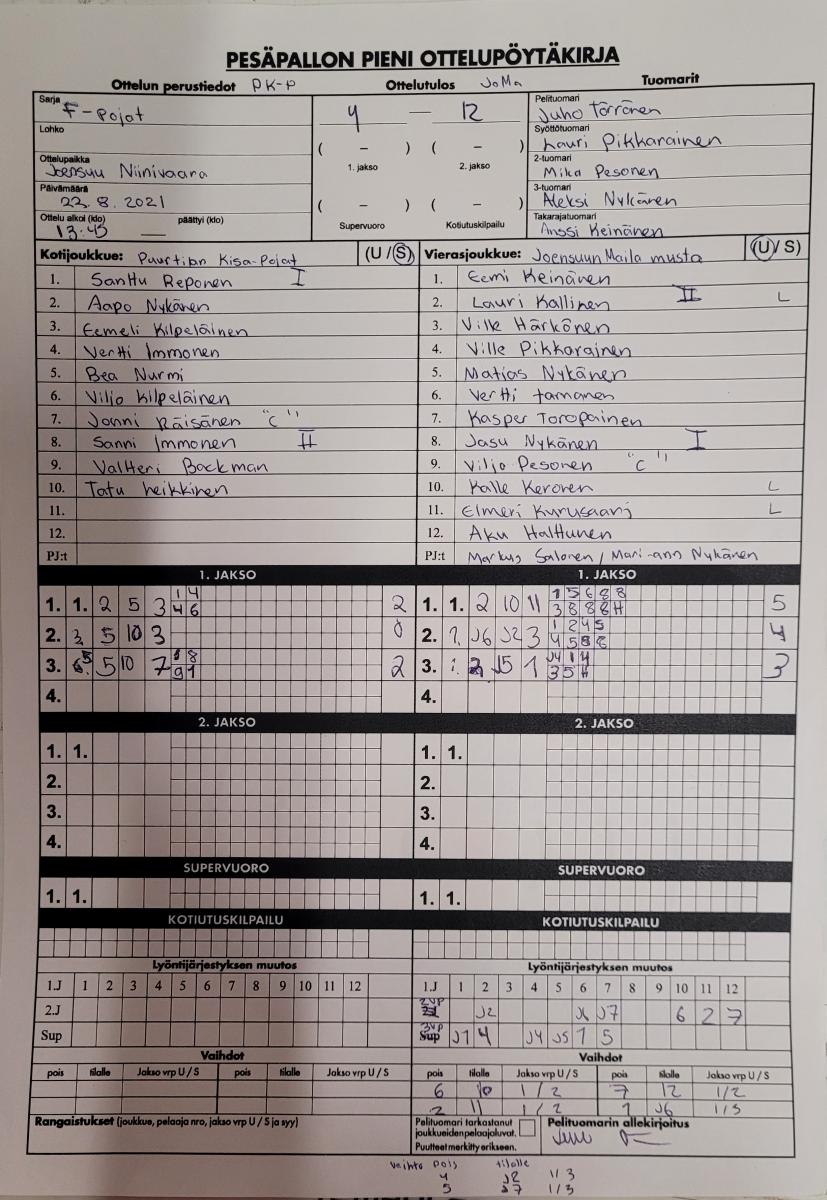 PESÄPALLON PIENI OTTELUPÖYTÄKIRJA
Ottelun perustiedot PK-P Ottelutulos JoMa Tuomarit
Sarja F-Pojat
4 — 12
Pelituomari Juho Törrönen
Lohko
Syöttötuomari Lauri Pikkarainen
( – ) ( – )
1. jakso 2. jakso
Ottelupaikka Joensuu Niinivaara
2-tuomari Mika Pesonen
Päivämäärä 22.8.2021
3-tuomari Aleksi Nykänen
( – ) ( – )
Ottelu alkoi (klo) päättyi (klo)
13.45 —
Supervuoro Kotiutuskilpailu
Takarajatuomari Anssi Keinänen
Kotijoukkue: Puurtilan Kisa-Pojat (U / S)
1. Santtu Reponen I
2. Aapo Nykänen
3. Eemeli Kilpeläinen
4. Vertti Immonen
5. Bea Nurmi
6. Viljo Kilpeläinen
7. Jonni Räisänen "C"
8. Sanni Immonen II
9. Valtteri Backman
10. Tatu Heikkinen
11.
12.
PJ:t
Vierasjoukkue: Joensuun Maila musta (U / S)
1. Eemi Keinänen
2. Lauri Kallinen II L
3. Ville Härkönen
4. Ville Pikkarainen
5. Matias Nykänen
6. Vertti Tamanen
7. Kasper Toropainen
8. Jasu Nykänen I
9. Viljo Pesonen "C"
10. Kalle Keronen L
11. Elmeri Kurusaari L
12. Aku Halttunen
PJ:t Markus Salonen / Mari-ann Nykänen
1. JAKSO
1. 1. 2 5 3 1 4 2
4 6
2. 5 10 3 0
3. 5 10 7 8 2
9 1
4.
2. JAKSO
1. 1.
2.
3.
4.
SUPERVUORO
1. 1.
KOTIUTUSKILPAILU
Lyöntijärjestyksen muutos
1.J 1 2 3 4 5 6 7 8 9 10 11 12
2.J
Sup
Vaihdot
pois tilalle Jakso vrp U / S pois tilalle Jakso vrp U / S
Rangaistukset (joukkue, pelaaja nro, jakso vrp U / S ja syy)
1. JAKSO
1. 1. 2 10 11 1 5 6 8 8 5
3 8 8 8 H
2. J6 J2 3 1 2 4 5 4
4 5 8 8
3. J5 1 J4 1 4 3
3 5 H
4.
2. JAKSO
1. 1.
2.
3.
4.
SUPERVUORO
1. 1.
KOTIUTUSKILPAILU
Lyöntijärjestyksen muutos
1.J 1 2 3 4 5 6 7 8 9 10 11 12
2VP J2 J6 J7 6 2 7
3VP Sup J1 4 J4 J5 1 5
Vaihdot
pois tilalle Jakso vrp U / S pois tilalle Jakso vrp U / S
6 10 1/2 7 12 1/2
2 11 1/2 1 J6 1/3
Pelituomari tarkastanut joukkueiden pelaajaluvat.
Puutteet merkitty erikseen.
Pelituomarin allekirjoitus
Vaihto pois tilalle
4 J2 1/3
5 J7 1/3